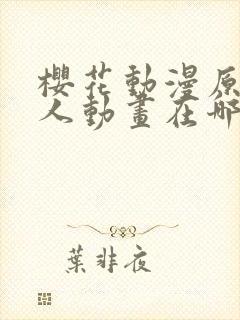 櫻花動漫原
人動畫在哪
葉非夜